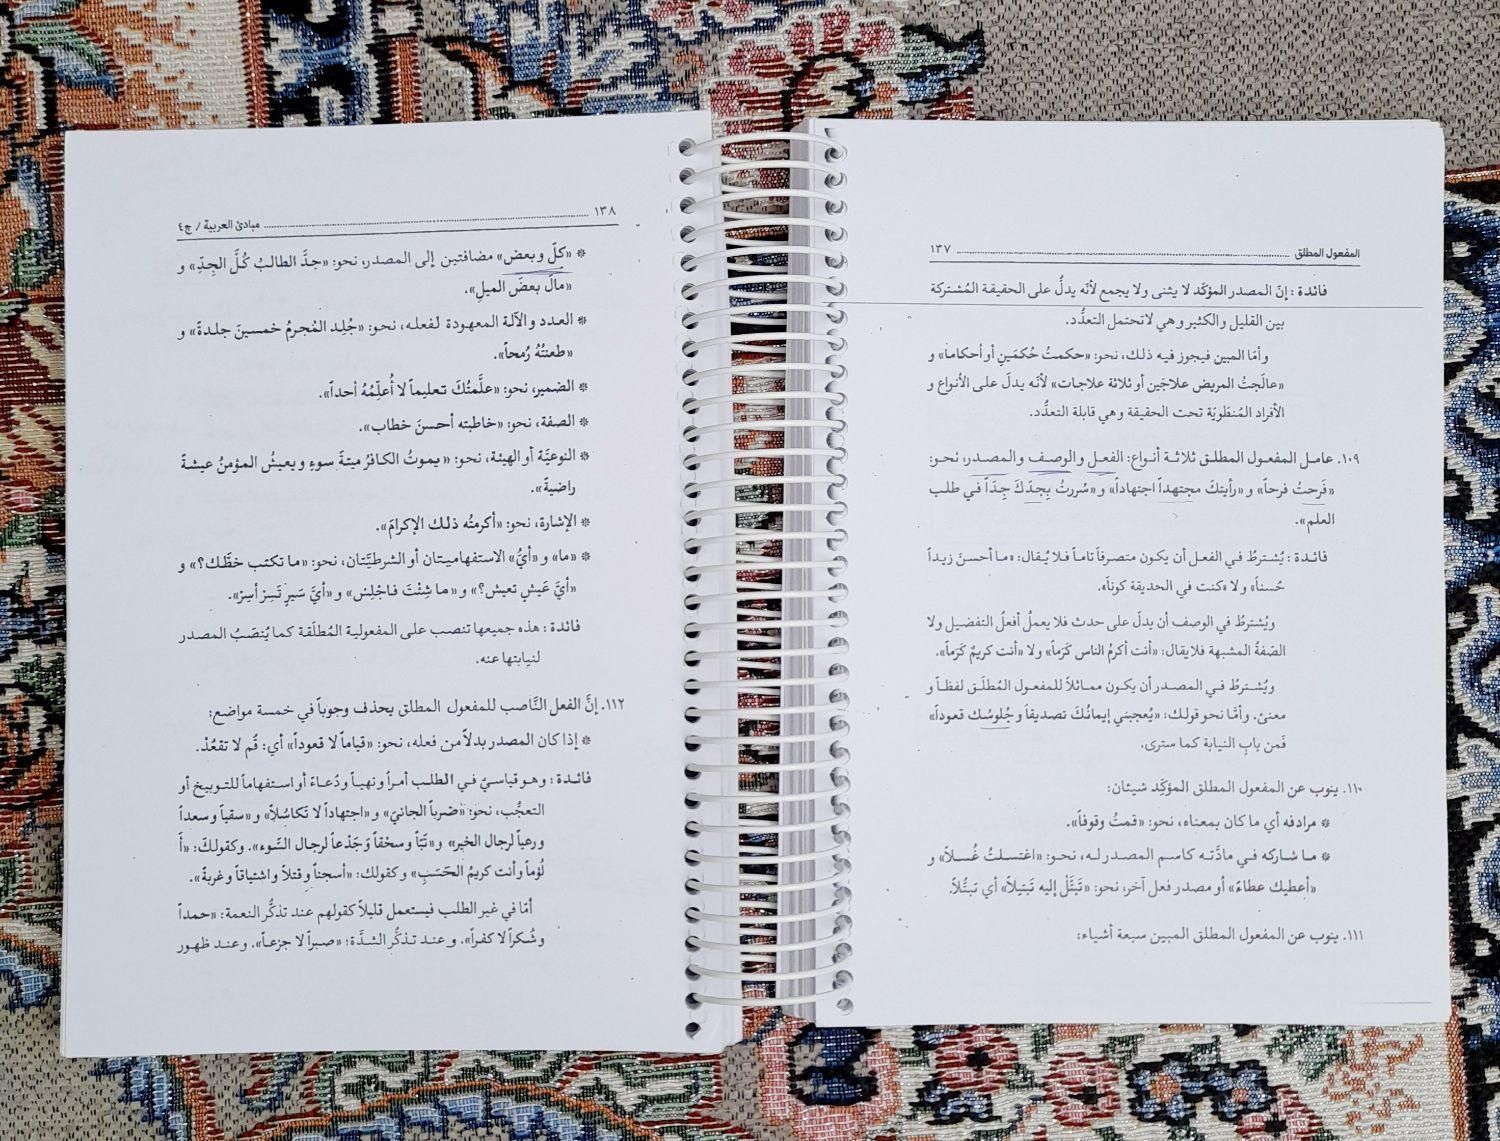 المفعول المطلق ........ ١٣٧
فائدة : إنّ المصدر المؤكّد لا يثنى ولا يجمع لأنّه يدلُّ على الحقيقة المُشتركة
بين القليل والكثير وهي لا تحتمل التعدُّد.
وأمّا المبين فيجوز فيه ذلك، نحو: «حكمتُ حُكمَينِ أو أحكاماً» و
«عالَجتُ المريض علاجَين أو ثلاثة علاجات» لأنّه يدلّ على الأنواع و
الأفراد المُنطَويَة تحت الحقيقة وهي قابلة التعدُّد.
١٠٩. عامل المفعول المطلق ثلاثة أنواع: الفعل والوصف والمصدر، نحو:
«فَرحتُ فرحاً» و «رأيتكَ مجتهداً اجتهاداً» و «سُررتُ بِجدّكَ جِدّاً في طلب
العلم».
فائدة : يُشترطُ في الفعل أن يكون متصرفاً تاماً فلا يُقال: «ما أحسنَ زيداً
حُسناً» ولا «كنت في الحديقة كوناً».
ويُشترطُ في الوصف أن يدلّ على حدث فلا يعملُ أفعلُ التفضيل ولا
الصّفةُ المشبهة فلا يقال: «أنت أكرمُ الناس كَرَماً» ولا «أنت كريمٌ كَرَماً».
ويُشترطُ في المصدر أن يكون مماثلاً للمفعول المُطلَق لفظاً و
معنىً. وأمّا نحو قولك: «يُعجبني إيمانُكَ تصديقاً وجُلوسُك قعوداً»
فَمن بابِ النيابة كما سترى.
١١٠. ينوب عن المفعول المطلق المؤكِّد شيئان:
* مرادفه أي ما كان بمعناه، نحو: «قمتُ وقوفاً».
* ما شاركه في مادّته كاسم المصدر له، نحو: «اغتسلتُ غُسلاً» و
«أعطيك عطاءً» أو مصدر فعل آخر، نحو: «تَبَتَّلْ إليه تَبتيلاً» أي تبتُّلاً.
١١١. ينوب عن المفعول المطلق المبين سبعة أشياء:
١٣٨ ........ مبادئ العربية / ج٤
* «كلّ وبعض» مضافتين إلى المصدر، نحو: «جدَّ الطالبُ كُلَّ الجِدِّ» و
«مالَ بعضَ الميلِ».
* العدد والآلة المعهودة لفعله، نحو: «جُلِد المُجرمُ خمسينَ جلدةً» و
«طعنتُهُ رُمحاً».
* الضمير، نحو: «علَّمتُكَ تعليماً لا أُعلِّمُهُ أحداً».
* الصفة، نحو: «خاطبته أحسنَ خطاب».
* النوعيَّة أو الهيئة، نحو: «يموتُ الكافرُ ميتةَ سوءٍ ويعيشُ المؤمنُ عيشةً
راضيةً».
* الإشارة، نحو: «أكرمتُه ذلك الإكرامَ».
* «ما» و «أيُّ» الاستفهاميتان أو الشرطيَّتان، نحو: «ما تكتب خطَّك؟» و
«أيَّ عَيشٍ تعيش؟» و «ما شِئْتَ فاجْلِسْ» و «أيَّ سَيرٍ تَسِرْ أسِرْ».
فائدة : هذه جميعها تنصب على المفعولية المُطلَقة كما يُنصَبُ المصدر
لنيابتها عنه.
١١٢. إنَّ الفعل النَّاصب للمفعول المطلق يحذف وجوباً في خمسة مواضع:
* إذا كان المصدر بدلاً من فعله، نحو: «قياماً لا قعوداً» أي: قُم لا تقعُدْ.
فائدة : وهو قياسيٌ في الطلب أمراً ونهياً ودُعاءً أو استفهاماً للتوبيخ أو
التعجُّب، نحو: «ضرباً الجانيَ» و «اجتهاداً لا تَكاسُلاً» و «سقياً وسعداً
ورعياً لرجال الخير» و «تبّاً وسحْقاً وَجَدْعاً لرجال السّوء». وكقولكَ: «أَ
لُؤماً وأنت كريمُ الحَسَبِ» وكقولك: «أسجناً وقتلاً واشتياقاً وغربةً».
أمّا في غير الطلب فيستعمل قليلاً كقولهم عند تذكُّر النعمة: «حمداً
وشُكراً لا كفراً». وعند تذكُّرِ الشدَّة: «صبراً لا جزعاً». وعند ظهور